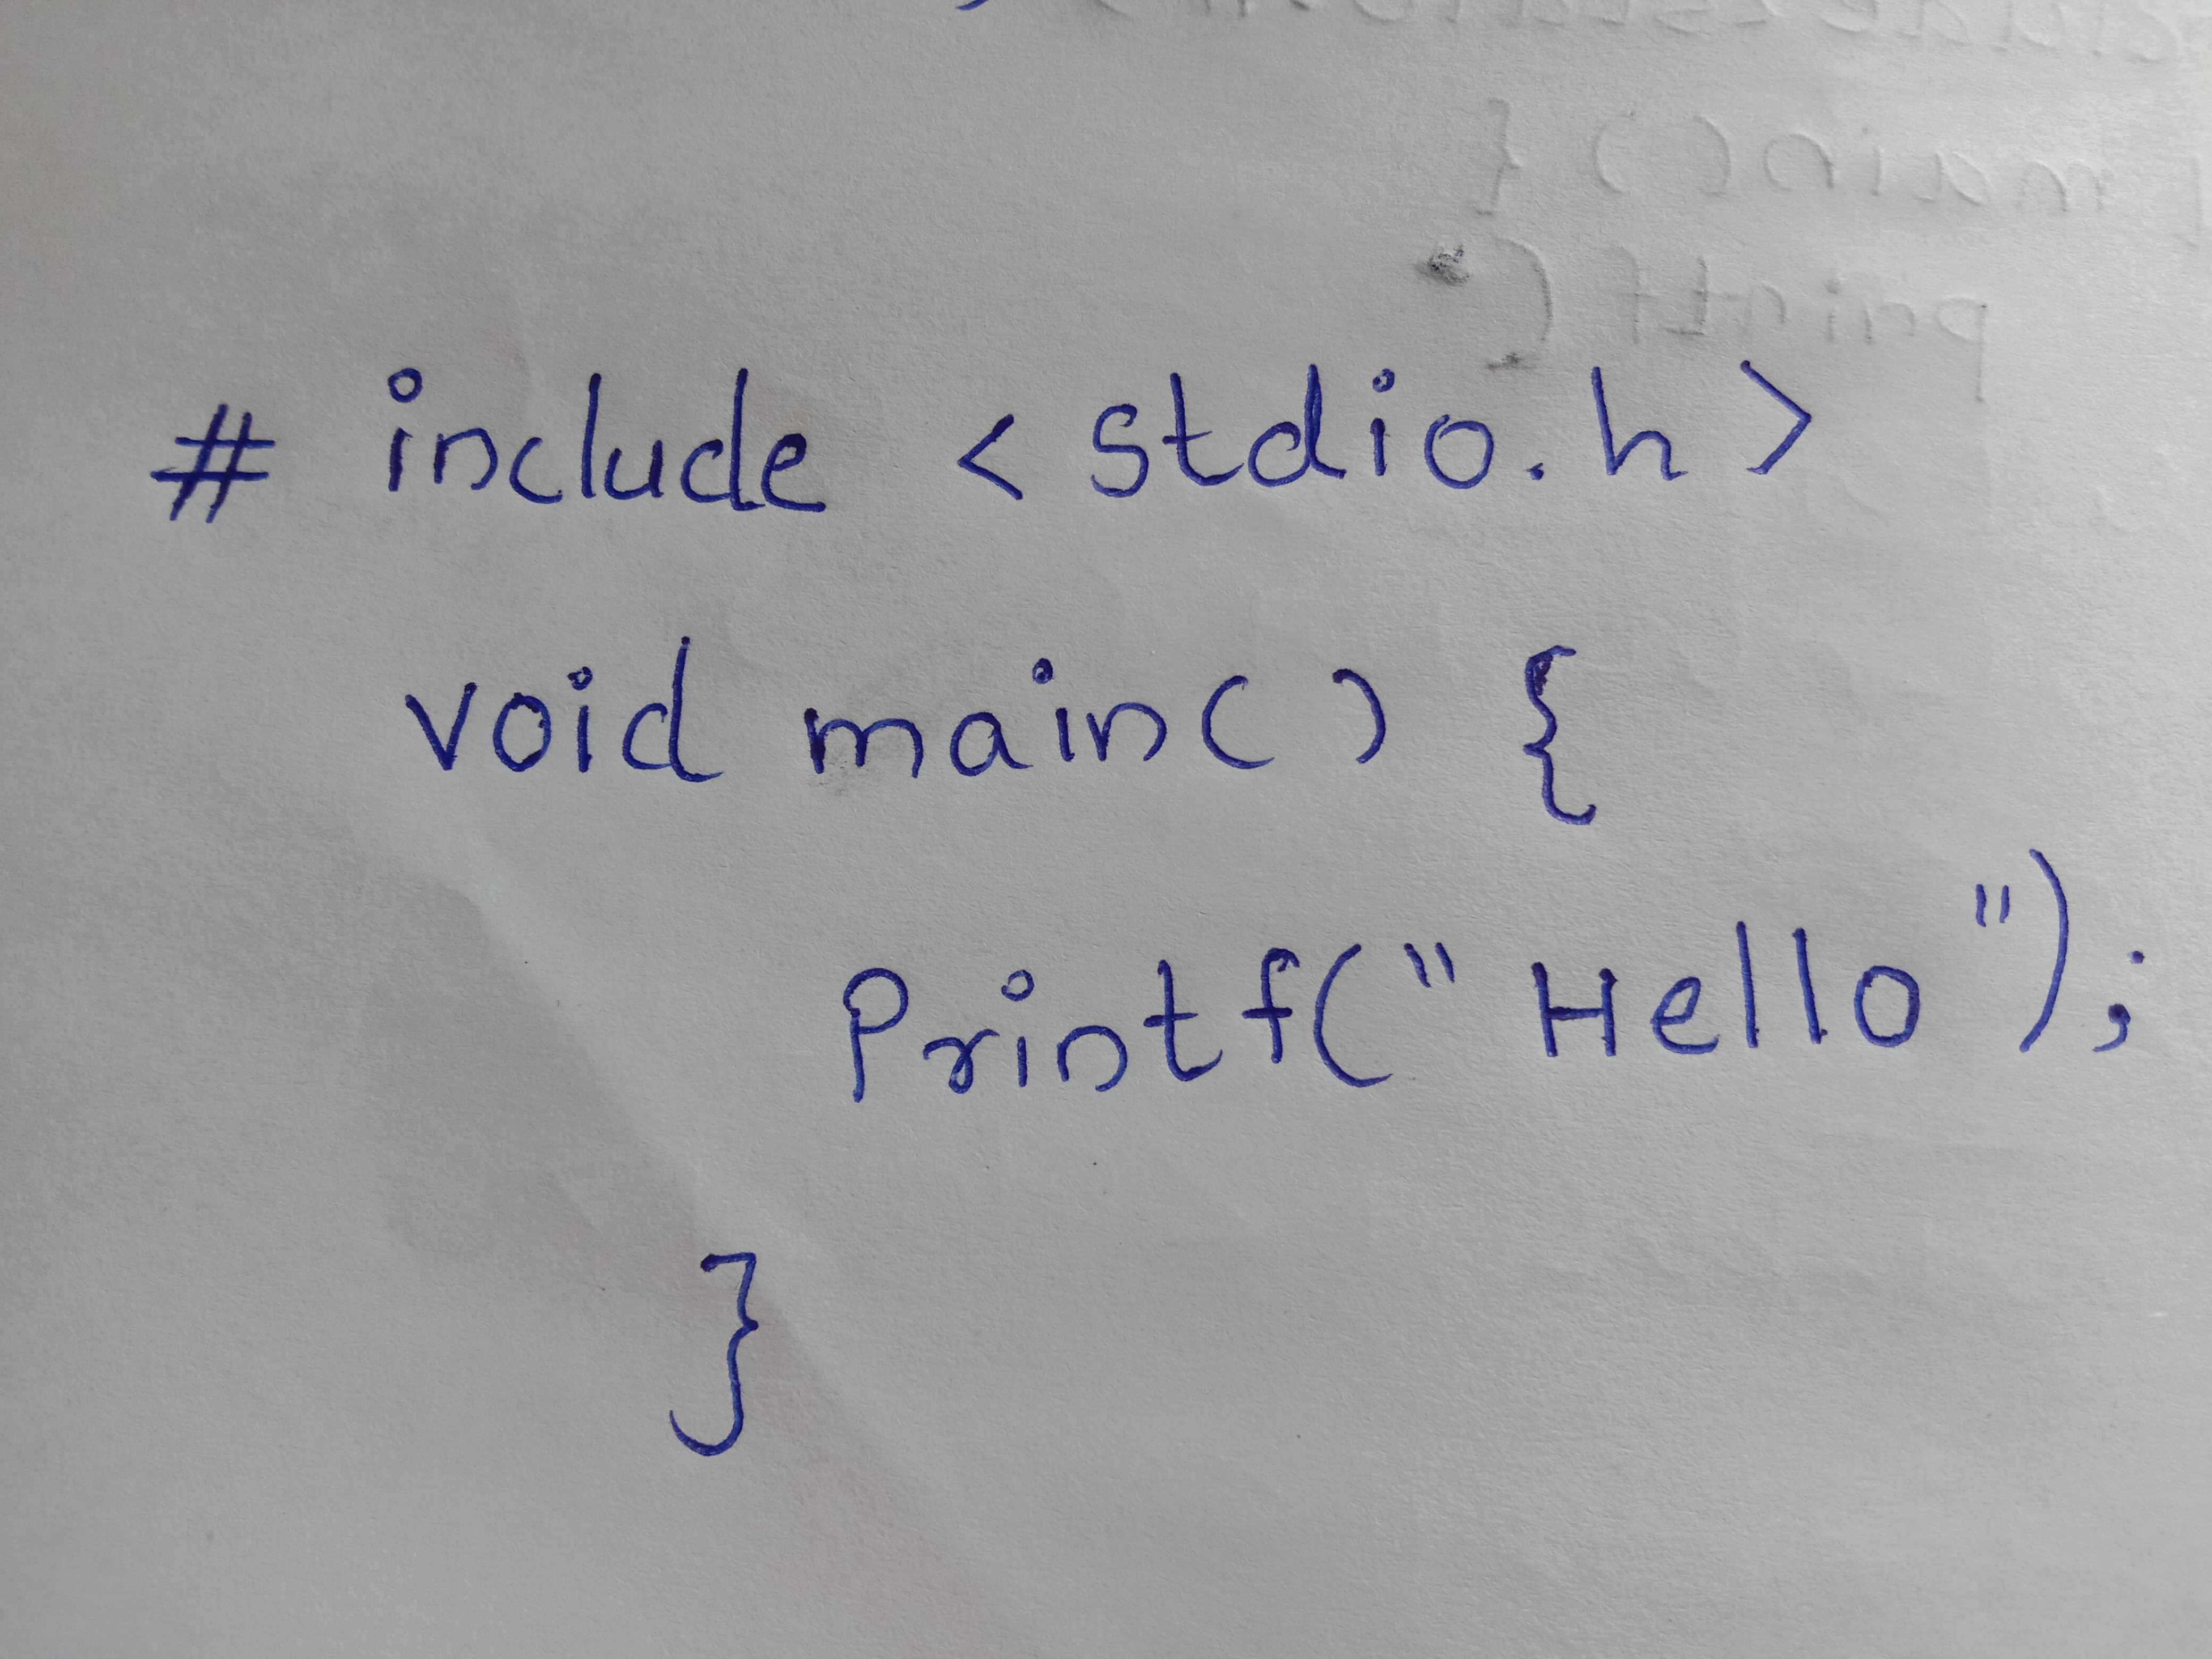 # include < stdio.h >
void main() {
Printf(" Hello ");
}